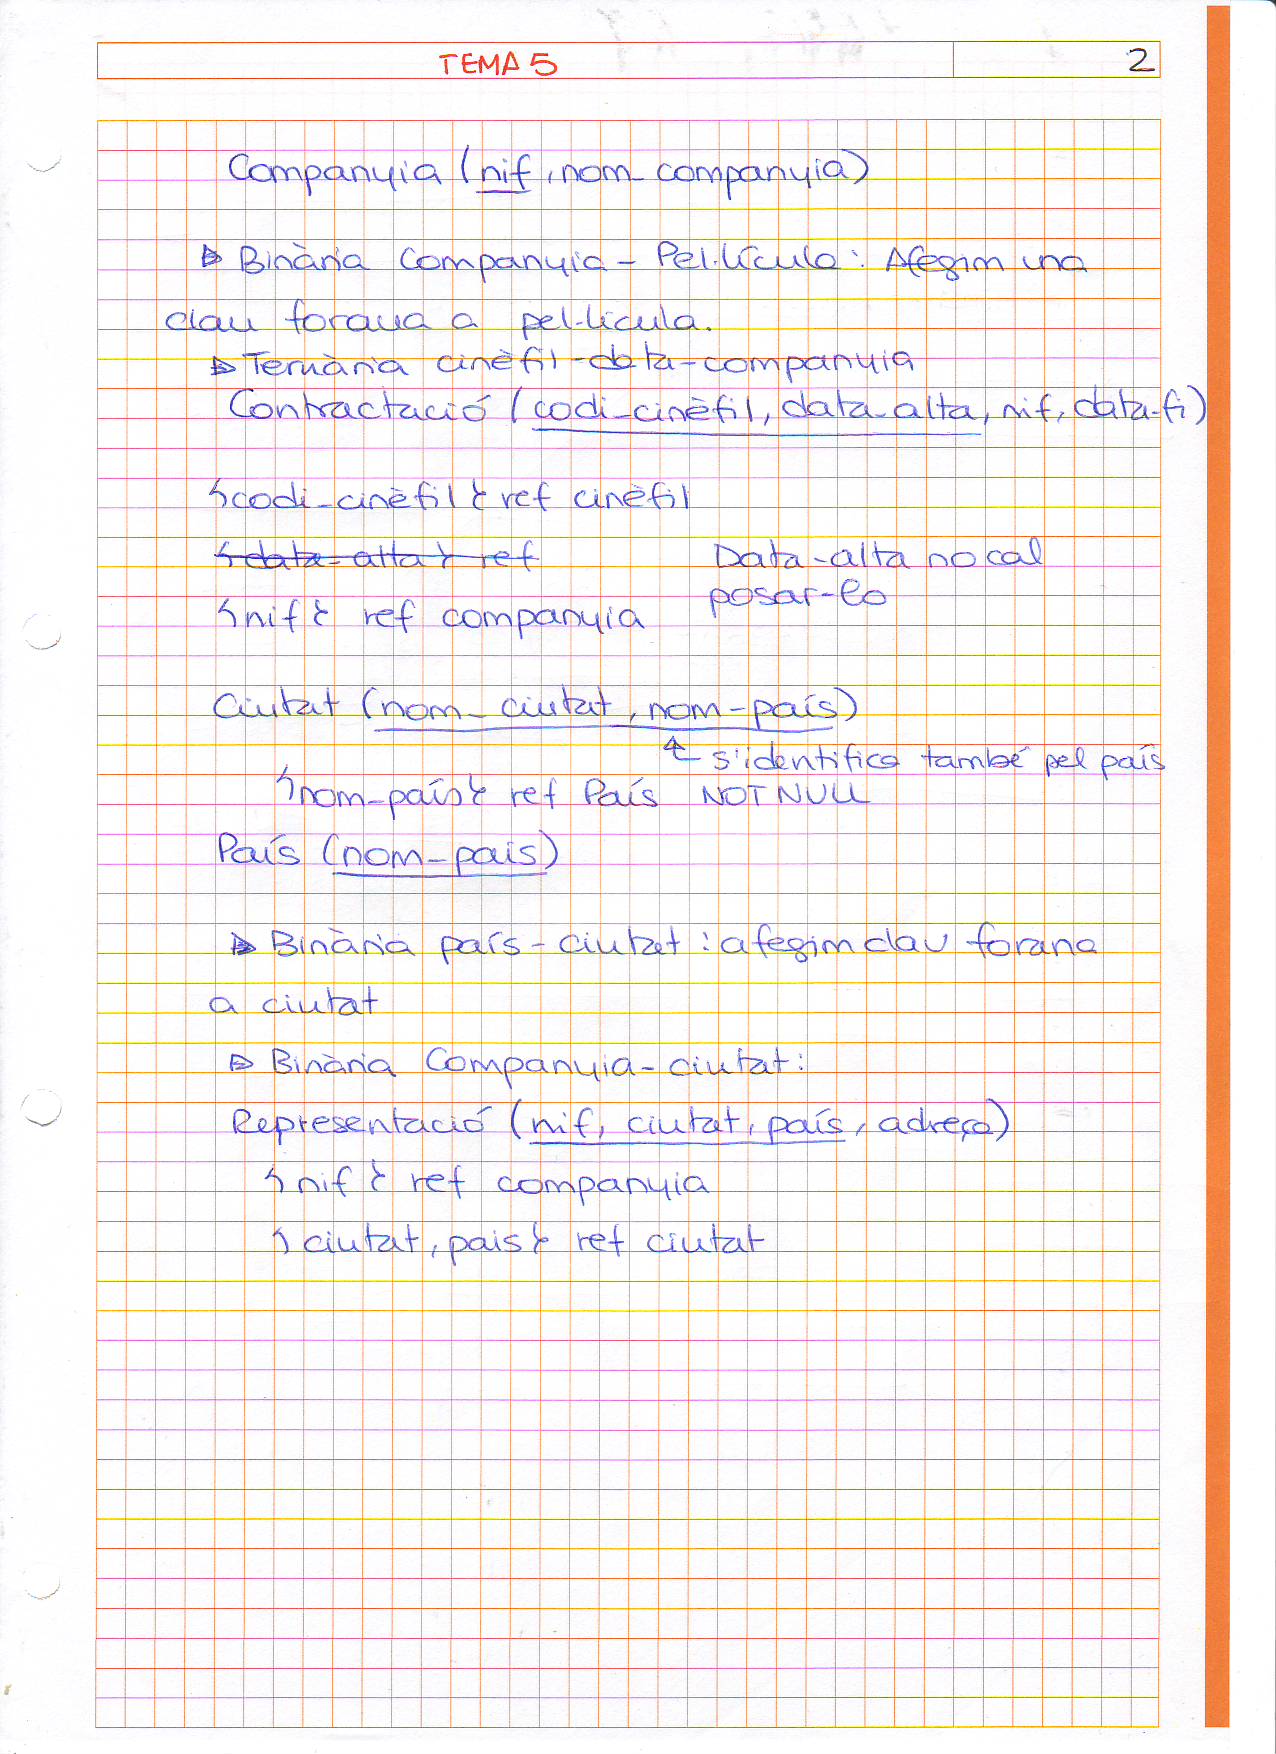 TEMA 5 2
Companyia (nif, nom_companyia)
▷ Binària Companyia - Pel·lícula: Afegim una
clau forana a pel·lícula.
▷ Ternària cinèfil-data-companyia
Contractació (codi-cinèfil, data-alta, nif, data-fi)
{codi-cinèfil} ref cinèfil
{data-alta} ref Data-alta no cal
posar-lo
{nif} ref companyia
Ciutat (nom_ciutat, nom-país)
↑ s'identifica també pel país
{nom-país} ref País NOT NULL
País (nom-pais)
▷ Binària país-ciutat: afegim clau forana
a ciutat
▷ Binària Companyia-ciutat:
Representació (nif, ciutat, país, adreça)
{nif} ref companyia
{ciutat, pais} ref ciutat